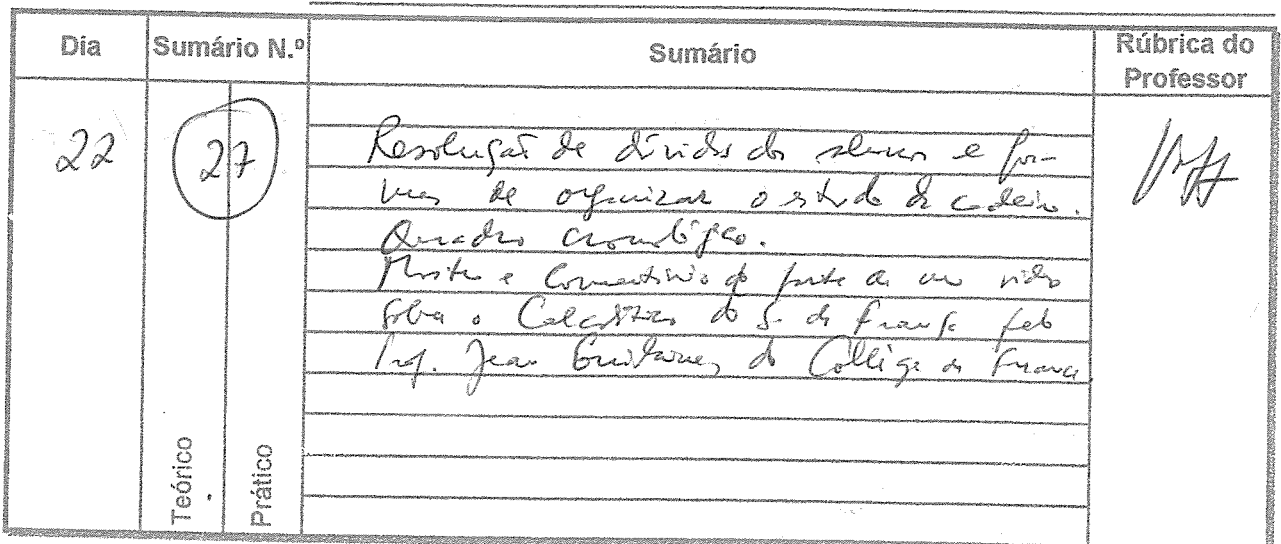 Día Sumário N.º Sumário Rúbrica do Professor
22 27 Resolução de dúvidas dos alunos e for-
mas de organizar o estudo da cadeira.
Quadro cronológico.
Mostra e comentário de parte de um vídeo
sobre o Calcolítico do S. de França pelo
Prof. Jean Guilaine, do Collège de France
Teórico
Prático